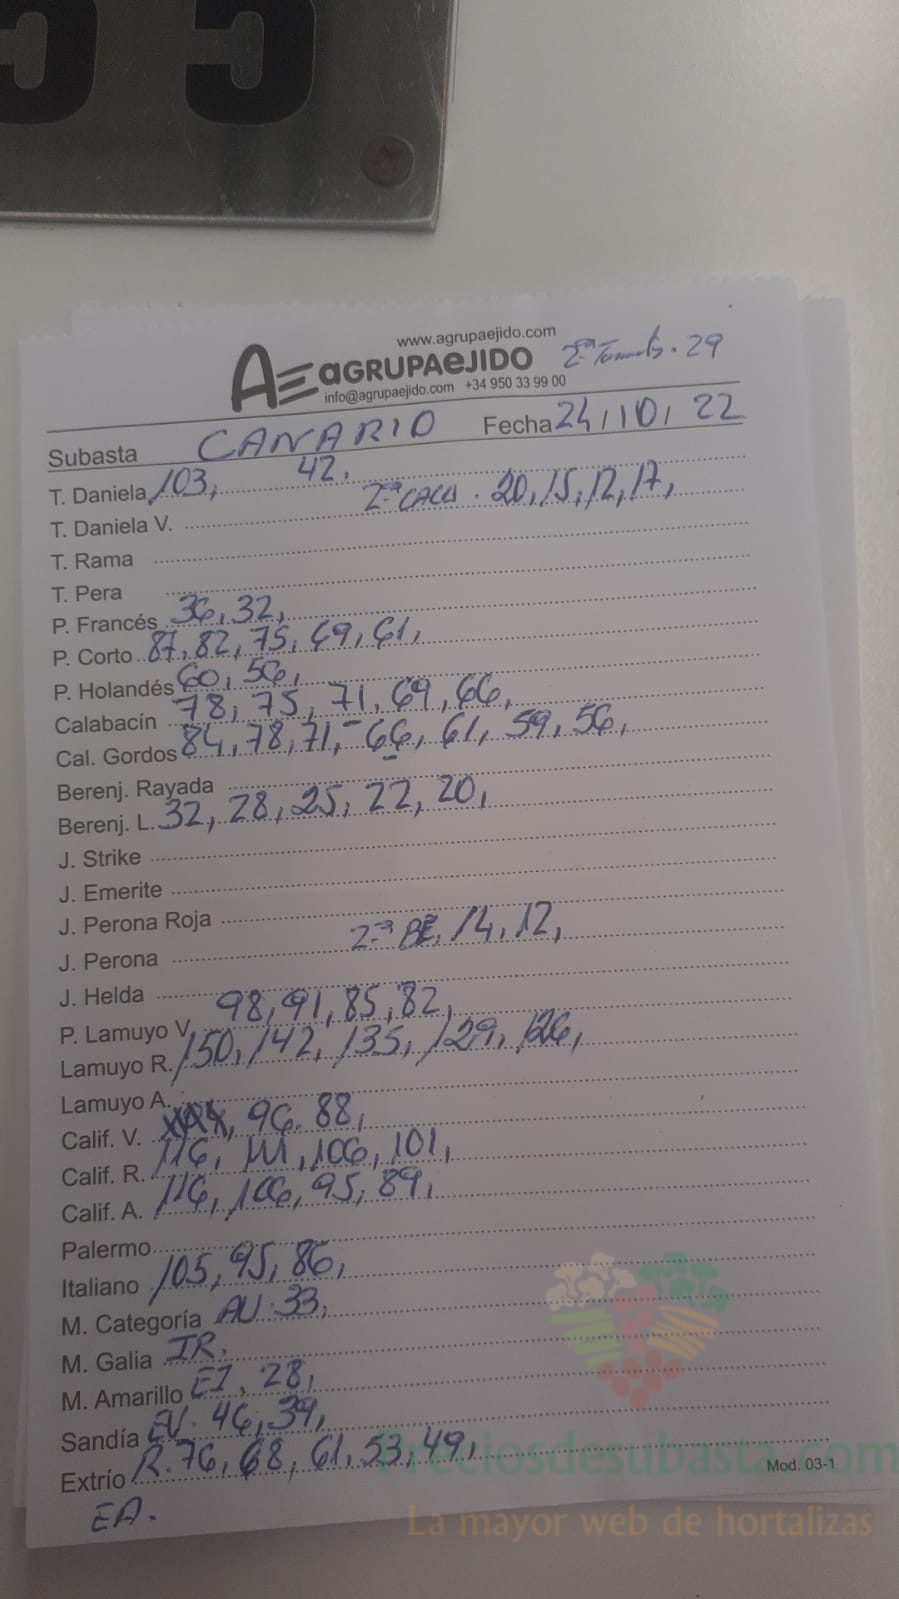 55
www.agrupaejido.com
AE aGRUPAeJIDO 2ª 29
info@agrupaejido.com +34 950 33 99 00
Subasta CANARIO Fecha 24/10/22
T. Daniela 103, 42,
2ª CACU. 20, 15, 12, 17,
T. Daniela V.
T. Rama
T. Pera
P. Francés 36, 32,
P. Corto 87, 82, 75, 69, 61,
P. Holandés 60, 56,
Calabacín 78, 75, 71, 69, 66,
Cal. Gordos 84, 78, 71, - 66, 61, 59, 56,
Berenj. Rayada
Berenj. L. 32, 28, 25, 22, 20,
J. Strike
J. Emerite
J. Perona Roja
J. Perona 2ª BE, 14, 12,
J. Helda
P. Lamuyo V. 98, 91, 85, 82,
Lamuyo R. 150, 142, 135, 129, 126,
Lamuyo A.
Calif. V. 96. 88,
Calif. R. 116, 111, 106, 101,
Calif. A. 116, 106, 95, 89,
Palermo
Italiano 105, 95, 86,
M. Categoría AU. 33,
M. Galia IR.
M. Amarillo EI, 28,
Sandía EV. 46, 39,
Extrío R. 76, 68, 61, 53, 49,
Mod. 03-1
EA.
Preciosdesubasta.com
La mayor web de hortalizas